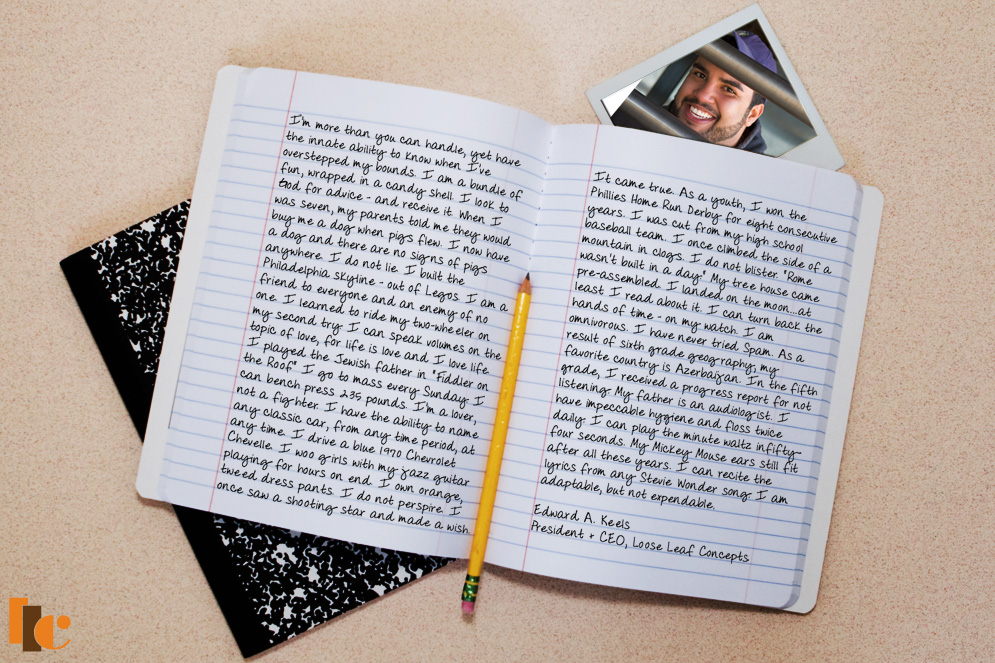 I'm more than you can handle, yet have
the innate ability to know when I've
overstepped my bounds. I am a bundle of
fun, wrapped in a candy shell. I look to
God for advice - and receive it. When I
was seven, my parents told me they would
buy me a dog when pigs flew. I now have
a dog and there are no signs of pigs
anywhere. I do not lie. I built the
Philadelphia skyline - out of Legos. I am a
friend to everyone and an enemy of no
one. I learned to ride my two-wheeler on
my second try. I can speak volumes on the
topic of love, for life is love and I love life.
I played the Jewish father in "Fiddler on
the Roof." I go to mass every Sunday. I
can bench press 235 pounds. I'm a lover,
not a fighter. I have the ability to name
any classic car, from any time period, at
any time. I drive a blue 1970 Chevrolet
Chevelle. I woo girls with my jazz guitar
playing for hours on end. I own orange,
tweed dress pants. I do not perspire. I
once saw a shooting star and made a wish.
It came true. As a youth, I won the
Phillies Home Run Derby for eight consecutive
years. I was cut from my high school
baseball team. I once climbed the side of a
mountain in clogs. I do not blister. "Rome
wasn't built in a day." My tree house came
pre-assembled. I landed on the moon...at
least I read about it. I can turn back the
hands of time - on my watch. I am
omnivorous. I have never tried Spam. As a
result of sixth grade geography, my
favorite country is Azerbaijan. In the fifth
grade, I received a progress report for not
listening. My father is an audiologist. I
have impeccable hygiene and floss twice
daily. I can play the minute waltz in fifty-
four seconds. My Mickey Mouse ears still fit
after all these years. I can recite the
lyrics from any Stevie Wonder song. I am
adaptable, but not expendable.
Edward A. Keels
President + CEO, Loose Leaf Concepts
llc